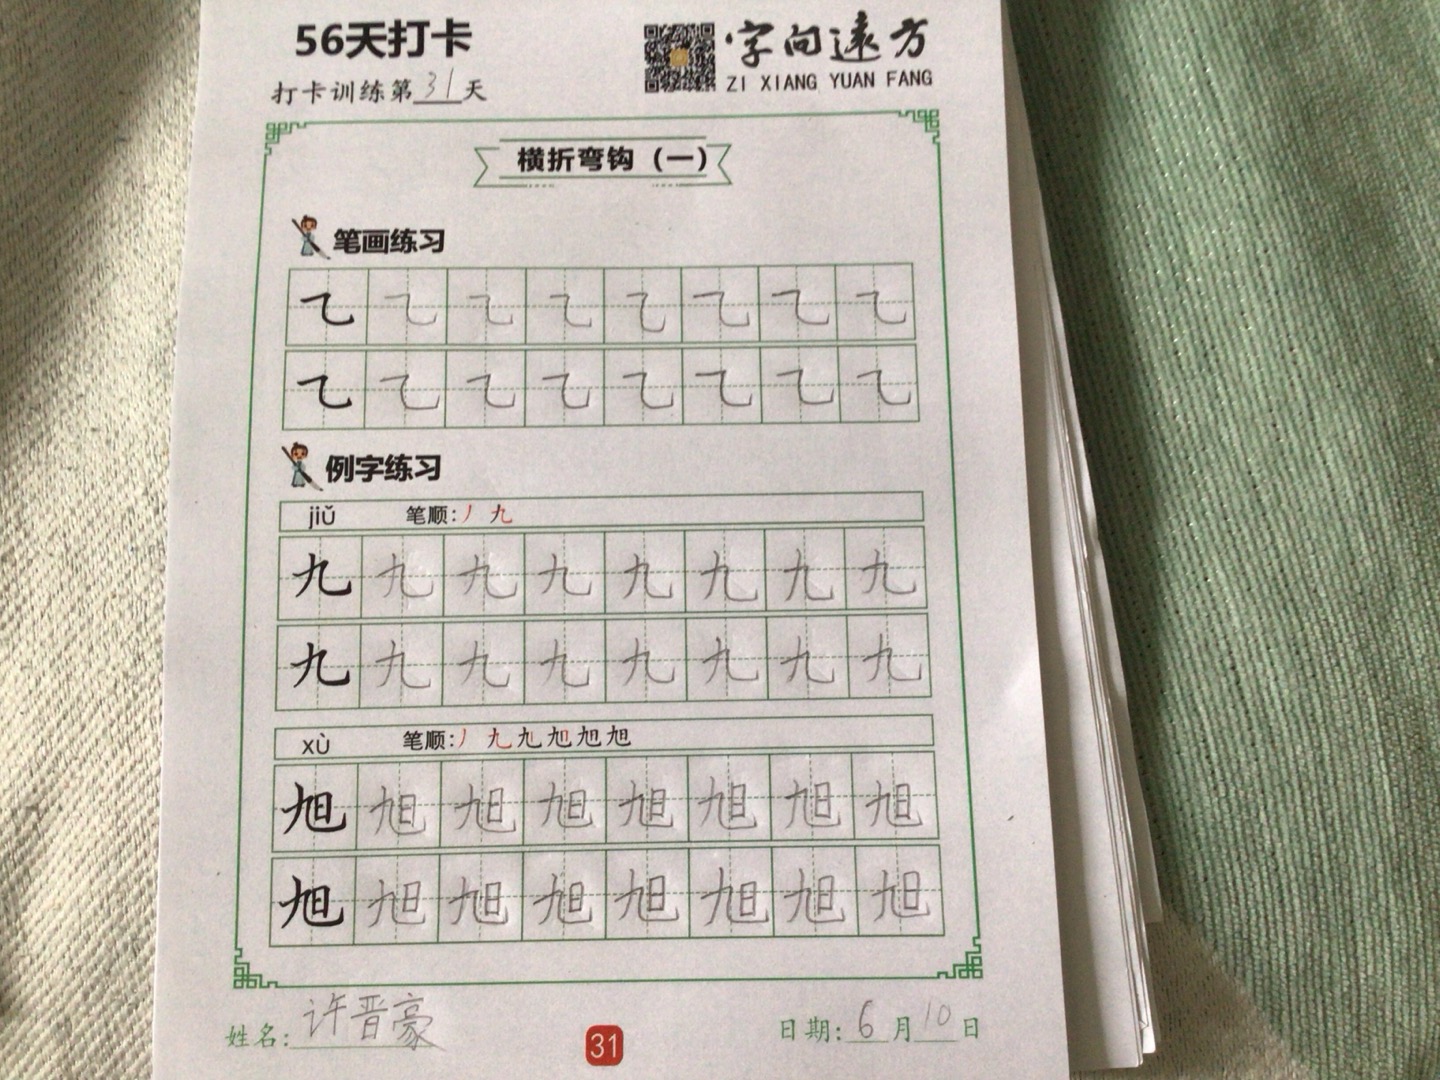 56天打卡
字向远方
打卡训练第31天
ZI XIANG YUAN FANG
横折弯钩（一）
笔画练习
㇈ ㇈ ㇈ ㇈ ㇈ ㇈ ㇈ ㇈
㇈ ㇈ ㇈ ㇈ ㇈ ㇈ ㇈ ㇈
例字练习
jiǔ 笔顺:丿 九
九 九 九 九 九 九 九 九
九 九 九 九 九 九 九 九
xù 笔顺:丿 九 九 旭 旭 旭
旭 旭 旭 旭 旭 旭 旭 旭
旭 旭 旭 旭 旭 旭 旭 旭
姓名:许晋豪
31
日期:6月10日